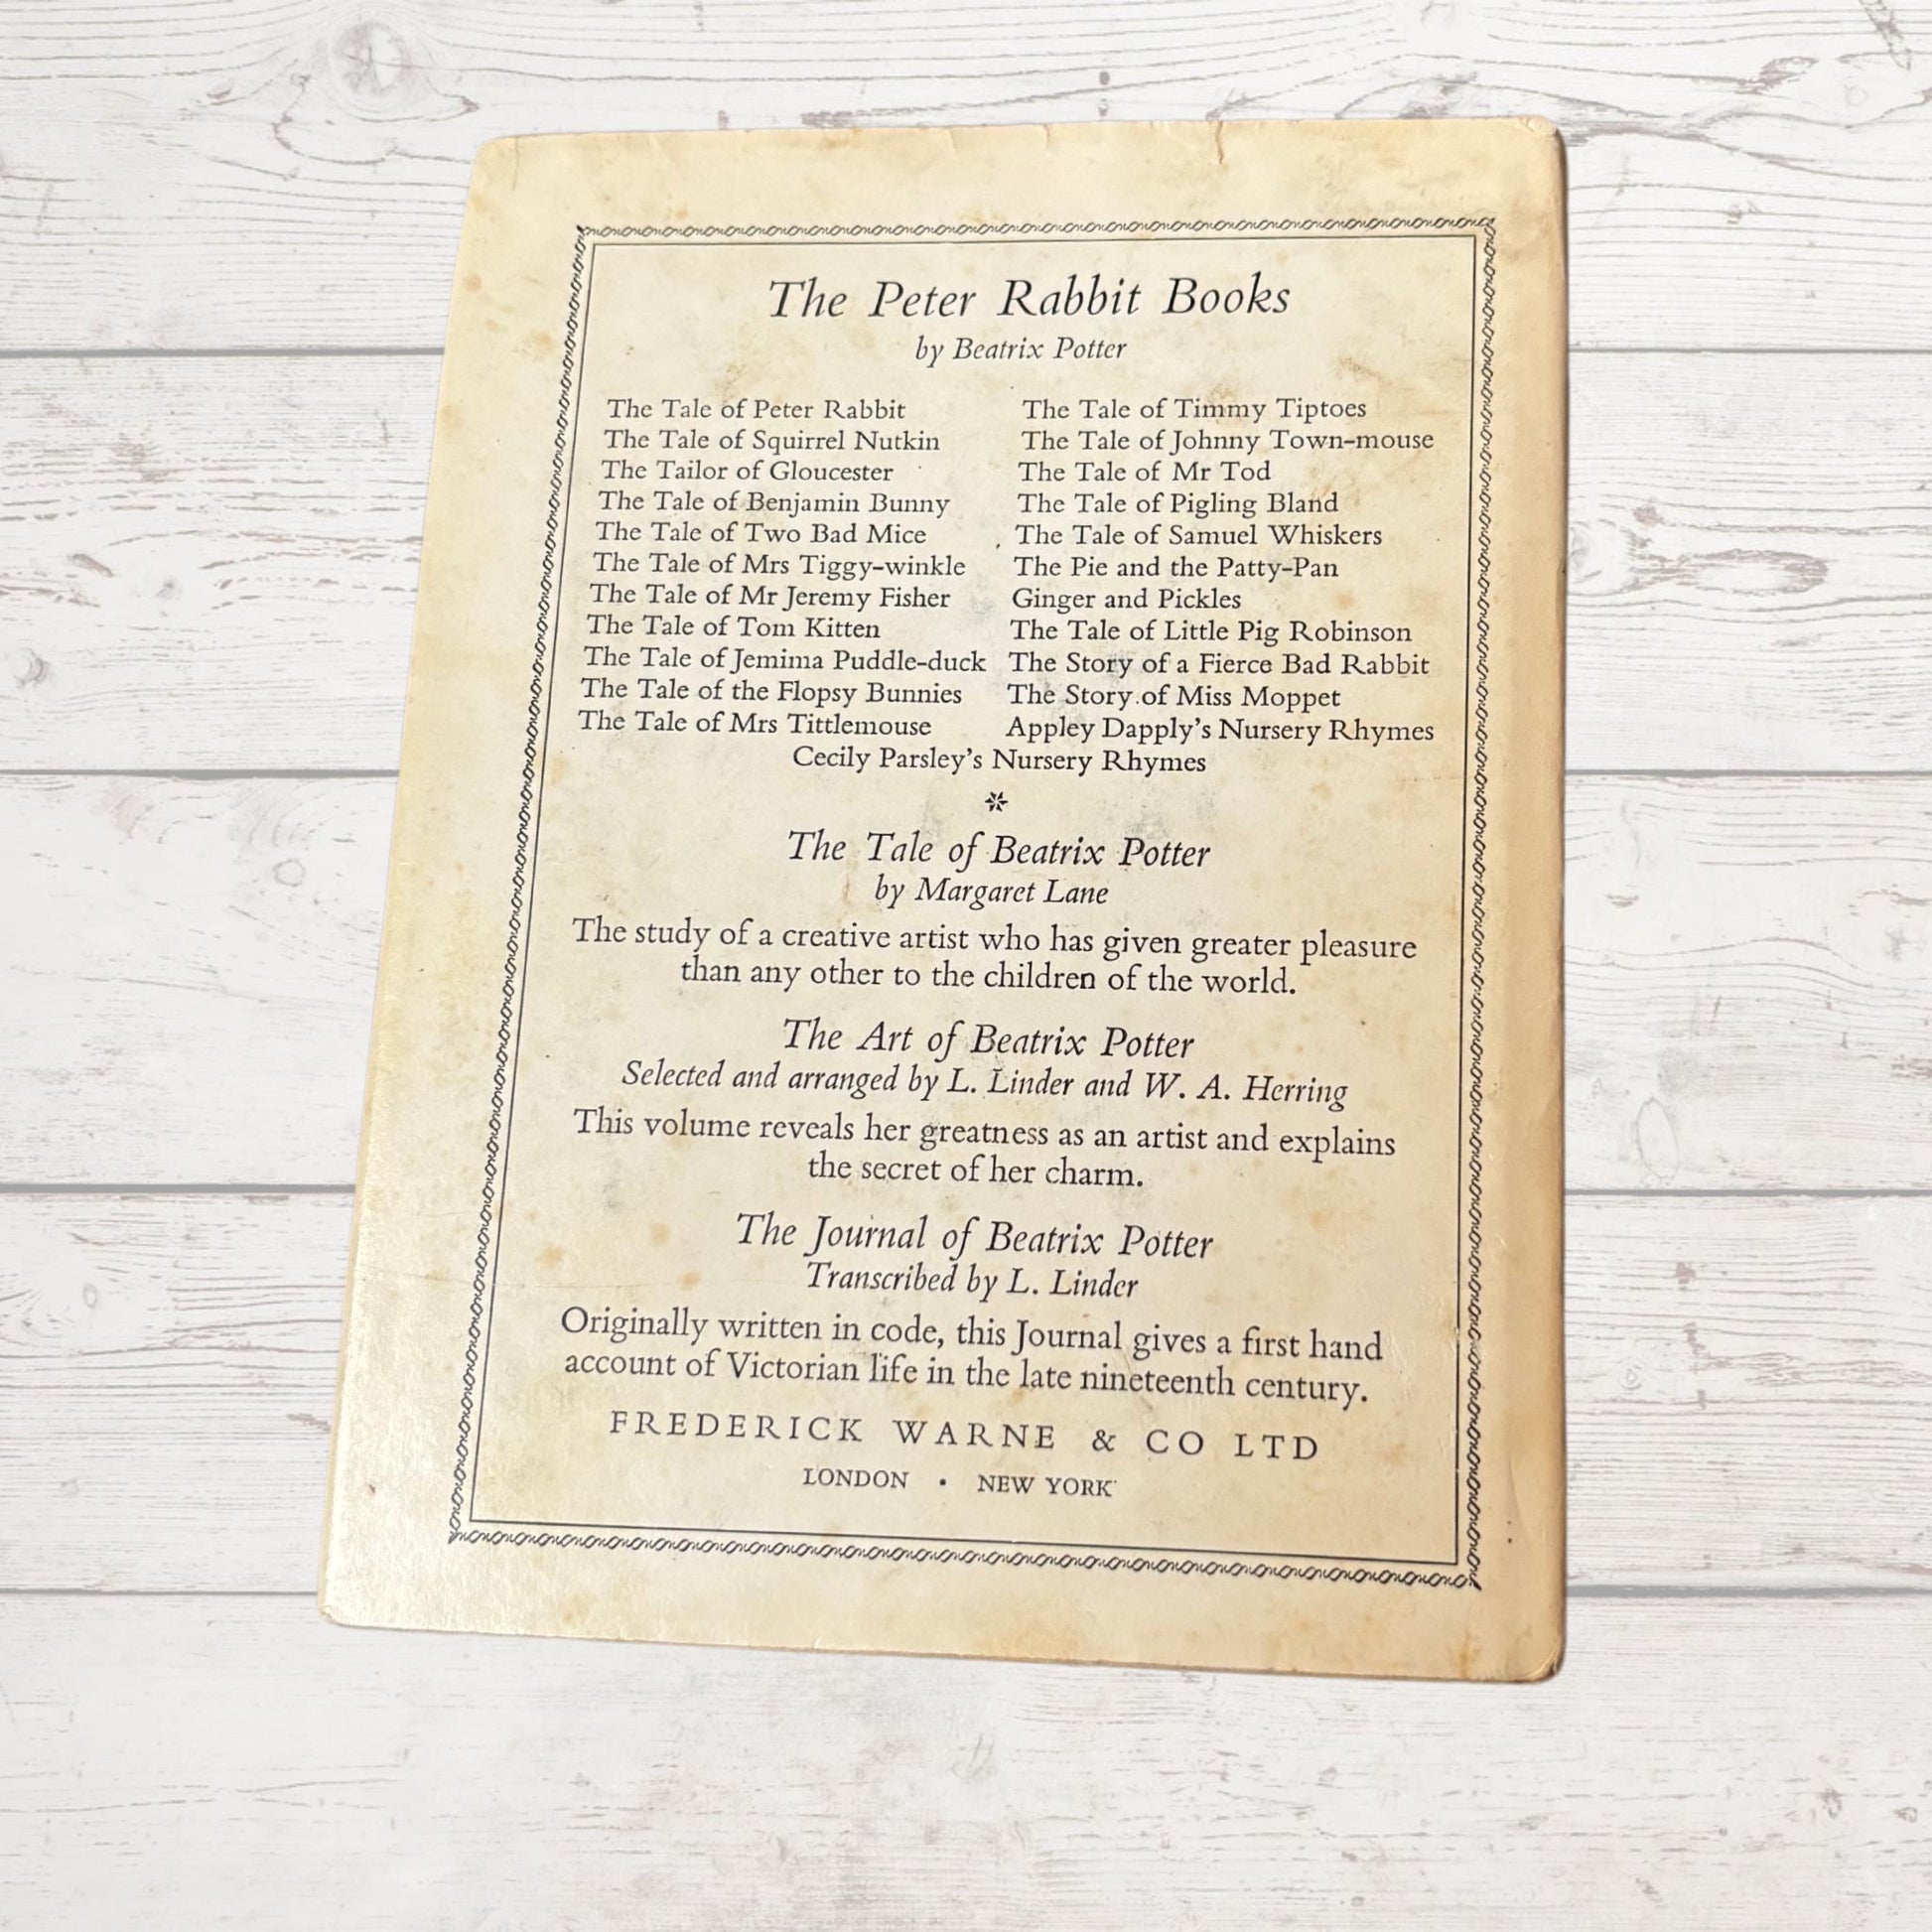 The Peter Rabbit Books
by Beatrix Potter
The Tale of Peter Rabbit
The Tale of Squirrel Nutkin
The Tailor of Gloucester
The Tale of Benjamin Bunny
The Tale of Two Bad Mice
The Tale of Mrs Tiggy-winkle
The Tale of Mr Jeremy Fisher
The Tale of Tom Kitten
The Tale of Jemima Puddle-duck
The Tale of the Flopsy Bunnies
The Tale of Mrs Tittlemouse
The Tale of Timmy Tiptoes
The Tale of Johnny Town-mouse
The Tale of Mr Tod
The Tale of Pigling Bland
The Tale of Samuel Whiskers
The Pie and the Patty-Pan
Ginger and Pickles
The Tale of Little Pig Robinson
The Story of a Fierce Bad Rabbit
The Story of Miss Moppet
Appley Dapply's Nursery Rhymes
Cecily Parsley's Nursery Rhymes
The Tale of Beatrix Potter
by Margaret Lane
The study of a creative artist who has given greater pleasure
than any other to the children of the world.
The Art of Beatrix Potter
Selected and arranged by L. Linder and W. A. Herring
This volume reveals her greatness as an artist and explains
the secret of her charm.
The Journal of Beatrix Potter
Transcribed by L. Linder
Originally written in code, this Journal gives a first hand
account of Victorian life in the late nineteenth century.
FREDERICK WARNE & CO LTD
LONDON • NEW YORK